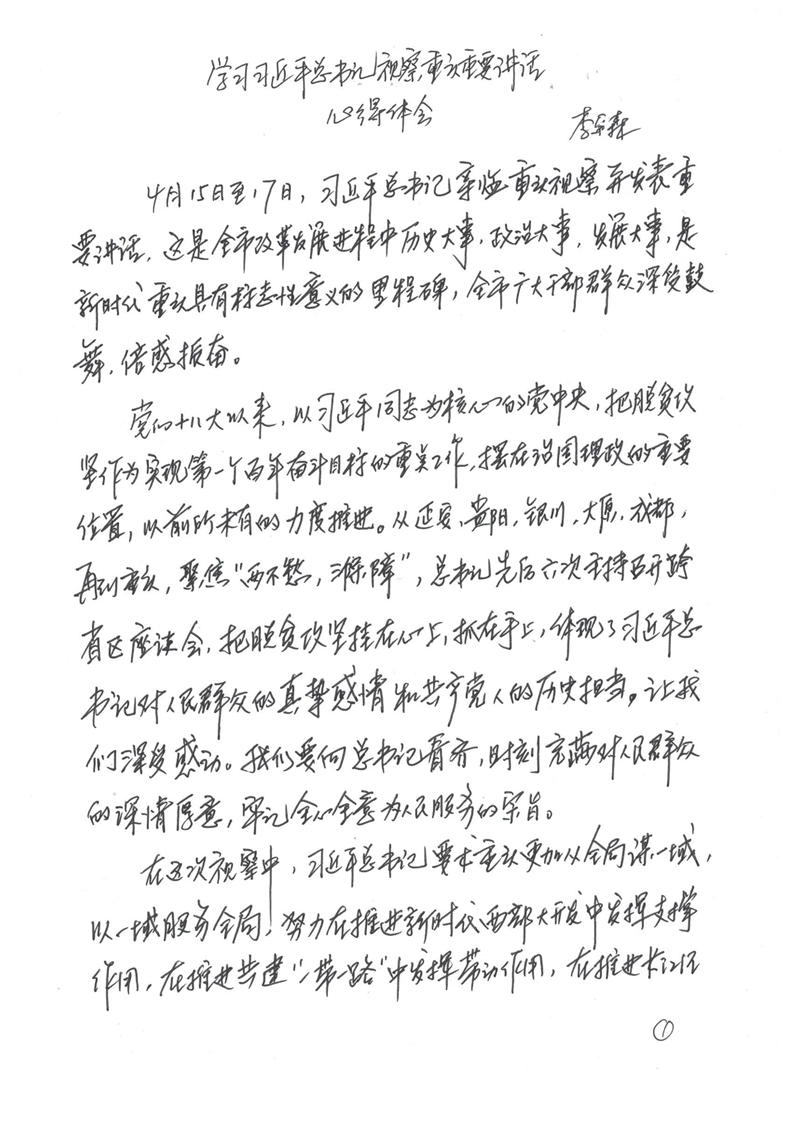 学习习近平总书记视察重庆重要讲话
心得体会
李森
4月15日至17日，习近平总书记亲临重庆视察并发表重
要讲话，这是全市改革发展进程中历史大事，政治大事，发展大事，是
新时代重庆具有标志性意义的里程碑，全市广大干部群众深受鼓
舞，倍感振奋。
党的十八大以来，以习近平同志为核心的党中央，把脱贫攻
坚作为实现第一个百年奋斗目标的重点工作，摆在治国理政的重要
位置，以前所未有的力度推进。从延安，贵阳，银川，太原，成都，
再到重庆，聚焦“两不愁，三保障”，总书记先后六次主持召开跨
省区座谈会，把脱贫攻坚挂在心上，抓在手上，体现了习近平总
书记对人民群众的真挚感情和共产党人的历史担当。让我
们深受感动。我们要向总书记看齐，时刻充满对人民群众
的深情厚意，牢记全心全意为人民服务的宗旨。
在这次视察中，习近平总书记要求重庆更加从全局谋一域，
以一域服务全局，努力在推进新时代西部大开发中发挥支撑
作用，在推进共建“一带一路”中发挥带动作用，在推进长江经
①